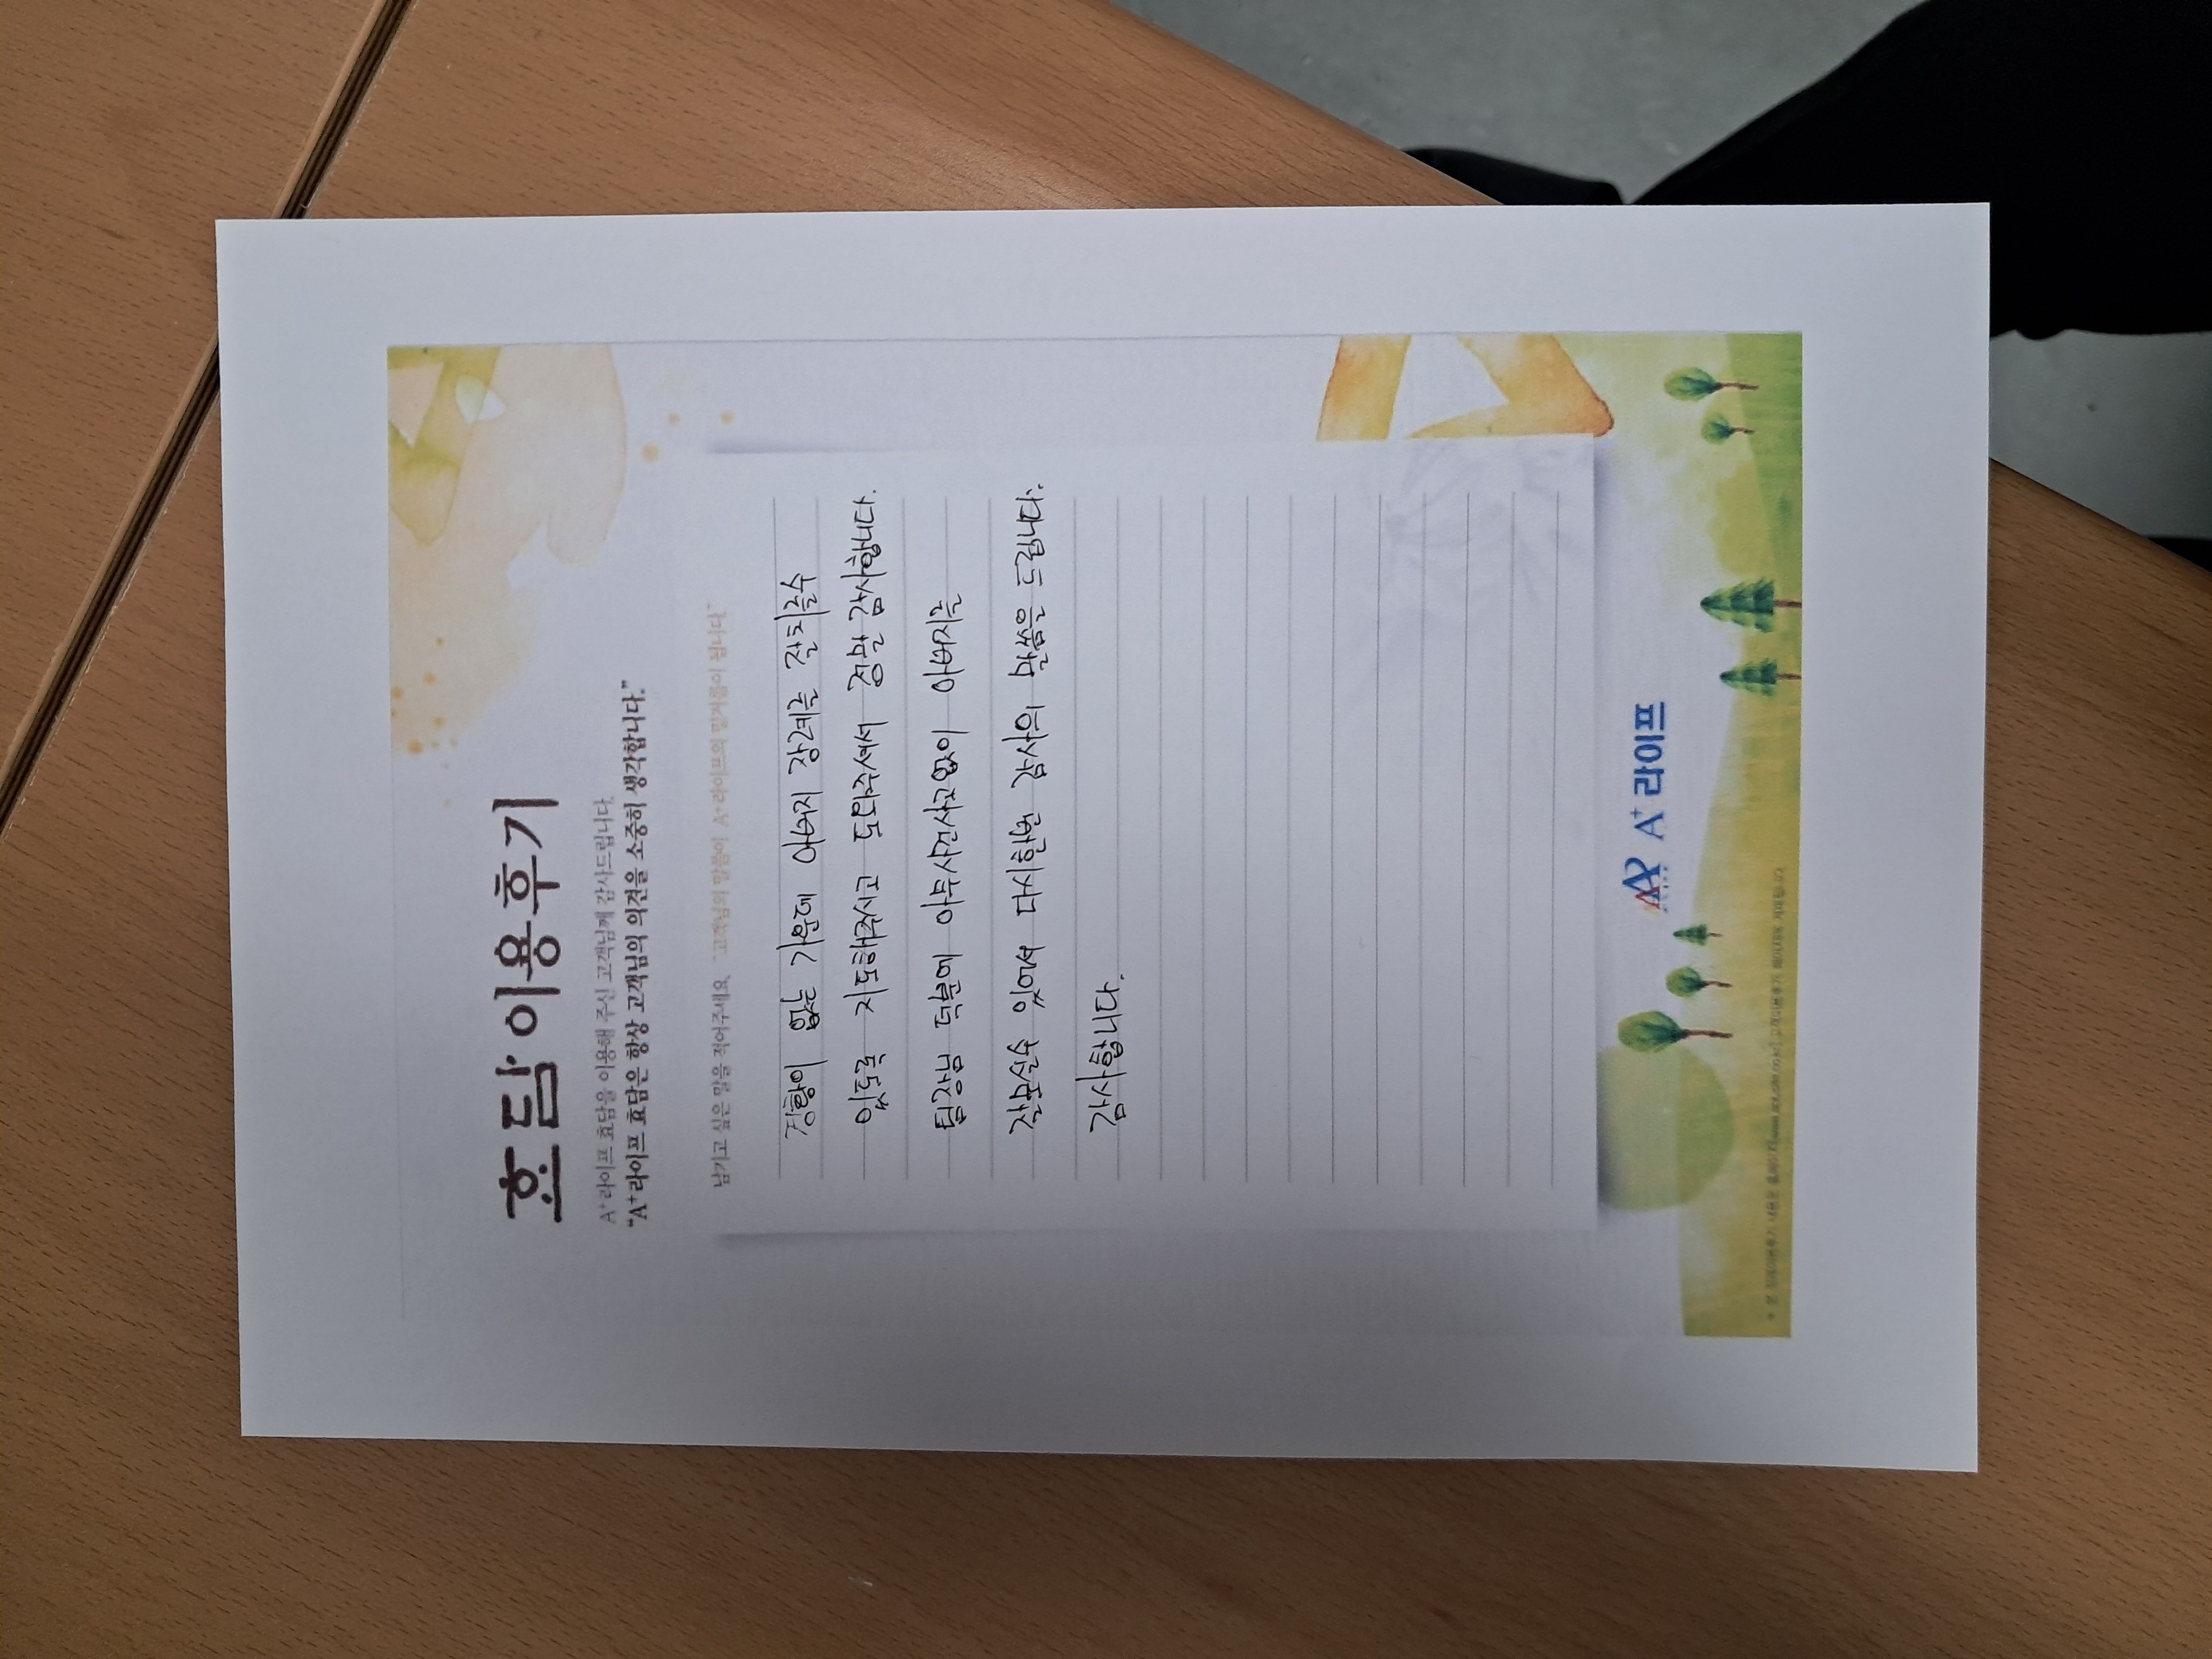 효담 이용후기
A+라이프 효담을 이용해 주신 고객님께 감사드립니다.
"A+라이프 효담은 항상 고객님의 의견을 소중히 생각합니다."
남기고 싶은 말을 적어주세요. "고객님의 말씀이 A+라이프의 밑거름이 됩니다."
경황이 없는 가운데 아버지 장례를 잘 치를수
있도록 지도해주시고 도와주셔서 정말 감사합니다.
팀장님 덕분에 아무사건사고없이 아버지를
잘모실수 있어서 다시한번 감사의 말씀을 드립니다.
감사합니다.
A+ 라이프